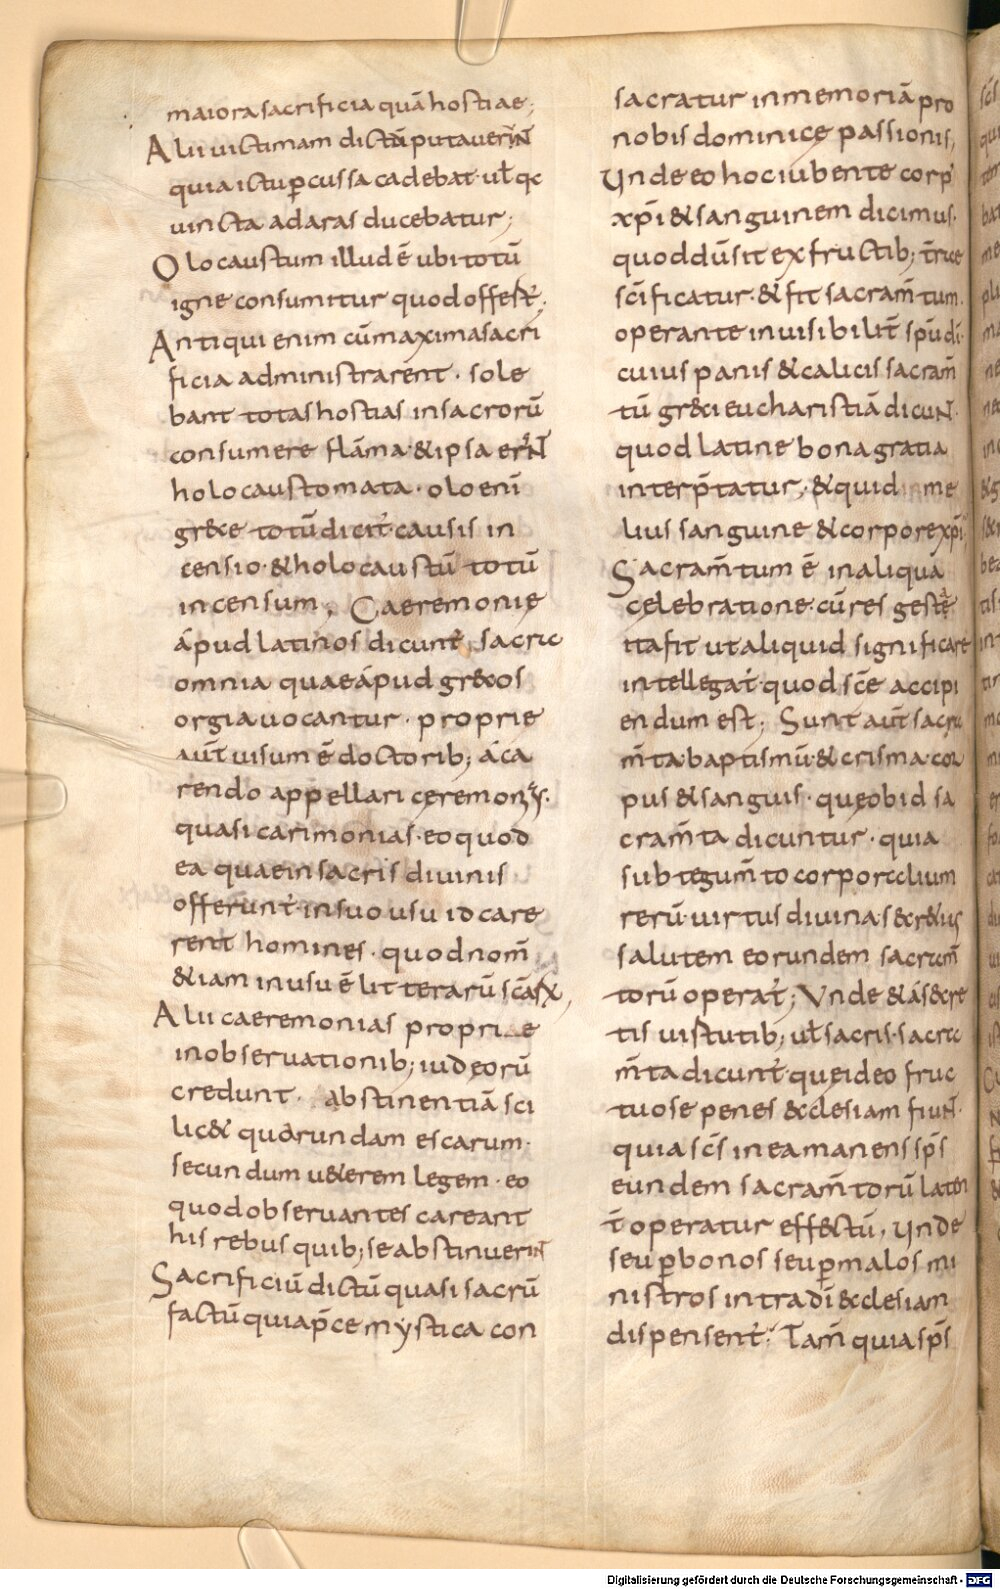 maiora sacrificia quā hostiae;
Alii uictimam dictā putauer̄NT
quia ictu ꝑcussa cadebat· ul̄ qđ
uincta ad aras ducebatur;
Olocaustum illud ē ubi totū
igne consumitur quod offert̄;
Antiqui enim cū maxima sacri
ficia administrarent· sole
bant totas hostias in sacrorū
consumere flāma· & ipsa er̄NT
holocaustomata· olo eni
grece totū dicit̄· causis in
censio· & holocaustū totū
incensum; Caeremonie
apud latinos dicunt̄ sacra
omnia quae apud grecos
orgia uocantur· proprie
aūt uisum ē doctorib; a ca
rendo appellari ceremonias·
quasi carimonias· eo quod
ea quae in sacris diuinis
offerunt̄· in suo usu id care
rent homines· quod nom̄
&iam in usu ē litterarū scāꝝ,
Alii caeremonias proprie
in obseruationib; iudeorū
credunt· abstinentiā sci
lic& quarundam escarum·
secundum u&erem legem· eo
quod obseruantes careant
his rebus quib; se abstinuer̄NT
Sacrificiū dictū quasi sacrū
factū quia p̄ce mystica con
sacratur in memoriā pro
nobis dominice passionis,
Unde eo hoc iubente corp'
xp̄i & sanguinem dicimus·
quod dū sit ex fructib; t̄rae
scīficatur· & fit sacram̄tum·
operante inuisibilit̄ sp̄u dī·
cuius panis & calicis sacram̄
tū greci eucharistiā dicuNT·
quod latine bona gratia
interp̄tatur· & quid me
lius sanguine & corpore xp̄i
Sacram̄tum ē in aliqua
celebratione· cū res gesta
ita fit ut aliquid significare
intellegat̄· quod sc̄e accipi
endum est; Sunt aūt sacra
m̄ta· baptismū· & crisma· cor
pus & sanguis· que ob id sa
cram̄ta dicuntur· quia
sub tegum̄to corporalium
rerū· uirtus diuina· secr&ius
salutem eorundem sacram̄
torū operat̄; Unde & a secre
tis uistutib; ul̄ sacris· sacra
m̄ta dicunt̄· que ideo fruc
tuose penes ecclesiam fiuNT·
quia scs̄ in ea manens sp̄s
eundem sacram̄torū laten
t̄ operatur effectū, Unde
seu ꝑ bonos seu ꝑ malos mi
nistros intra dī ecclesiam
dispensent̄· Tam̄ quia sp̄s
Digitalisierung gefördert durch die Deutsche Forschungsgemeinschaft - DFG